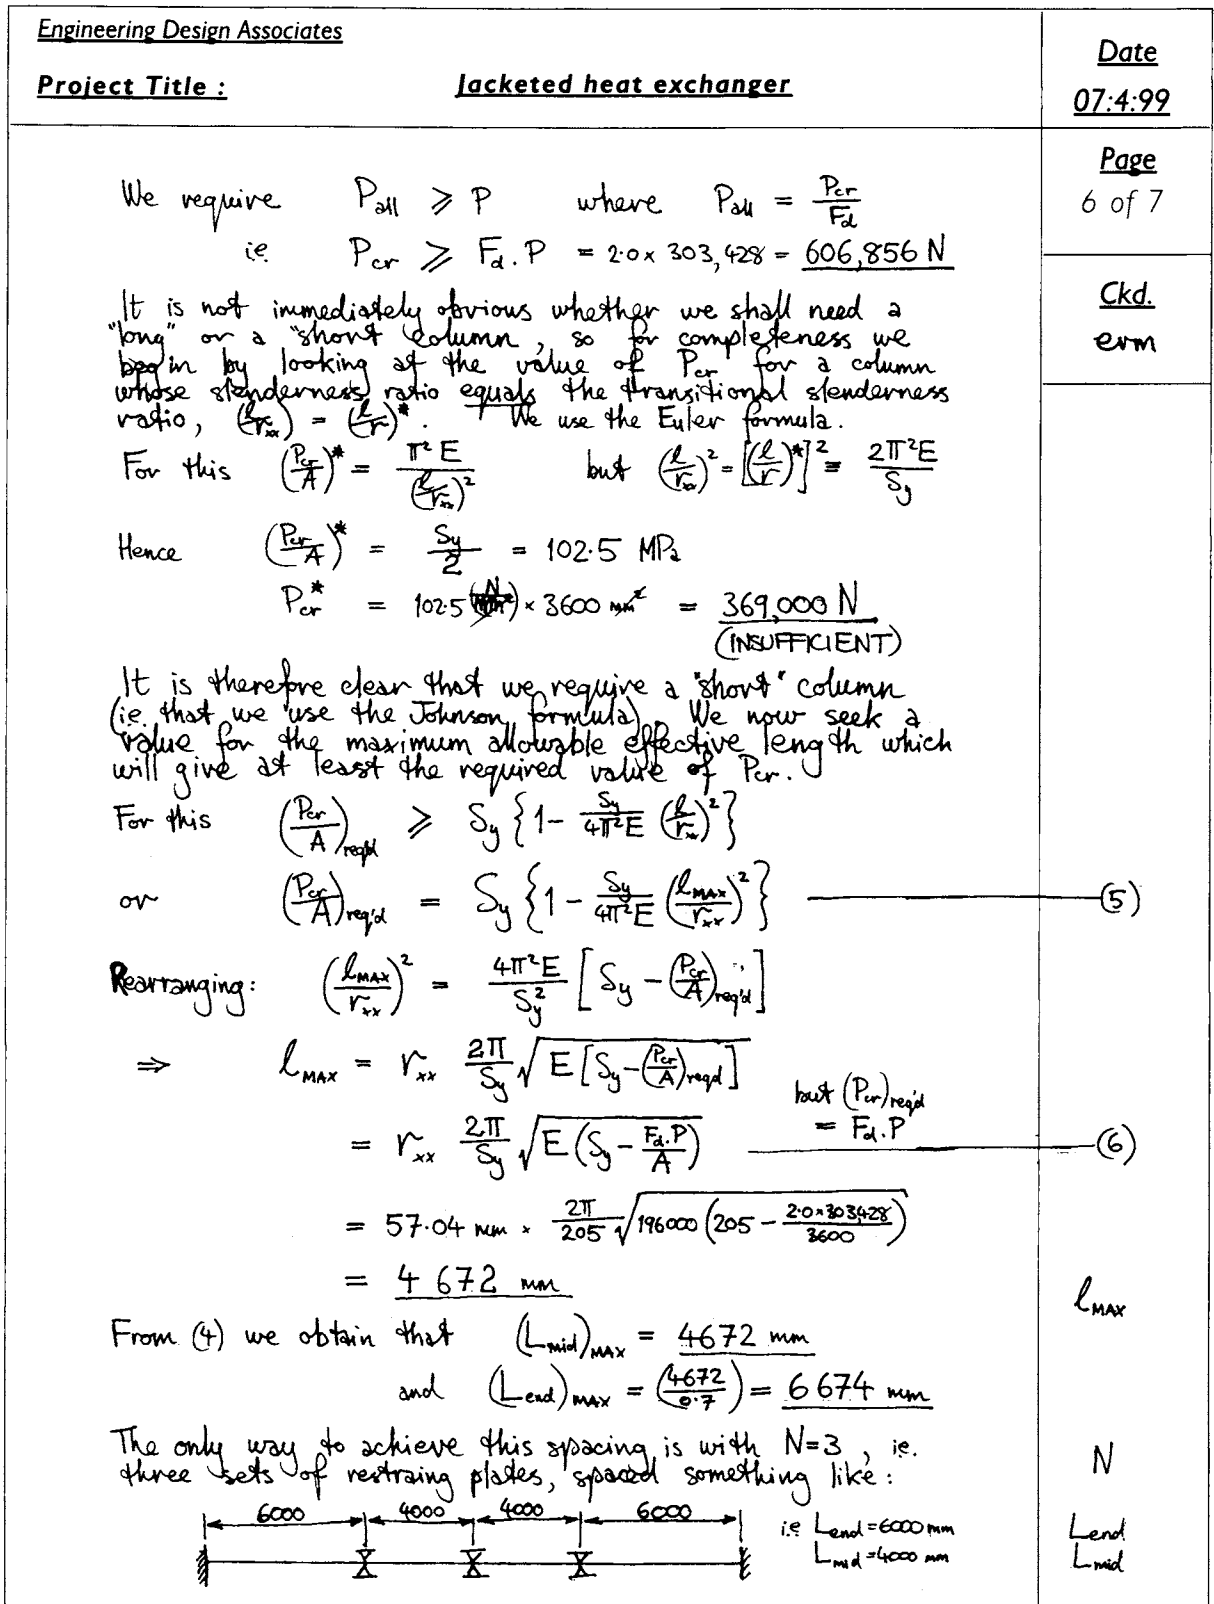 Engineering Design Associates
Project Title : Jacketed heat exchanger
Date
07:4:99
Page
6 of 7
Ckd.
erm
We require P_all ⩾ P where P_all = P_cr / F_d
ie. P_cr ⩾ F_d . P = 2·0 × 303,428 = 606,856 N
It is not immediately obvious whether we shall need a
"long" or a "short column, so for completeness we
begin by looking at the value of P_cr for a column
whose slenderness ratio equals the transitional slenderness
ratio, (l/r_xx) = (l/r)*. We use the Euler formula.
For this (P_cr/A)* = π² E / (l/r_xx)² but (l/r_xx)² = [(l/r)*]² = 2π²E / S_y
Hence (P_cr/A)* = S_y/2 = 102·5 MPa
P_cr* = 102·5 (N/mm²) × 3600 mm² = 369,000 N
(INSUFFICIENT)
It is therefore clear that we require a "short" column
(ie. that we use the Johnson formula). We now seek a
value for the maximum allowable effective length which
will give at least the required value of Pcr.
For this (P_cr/A)_reqd ⩾ S_y {1 - S_y/4π²E (l/r_xx)²}
or (P_cr/A)_req'd = S_y {1 - S_y/4π²E (l_MAX/r_xx)²} (5)
Rearranging: (l_MAX/r_xx)² = 4π²E/S_y² [S_y - (P_cr/A)_req'd]
⇒ l_MAX = r_xx 2π/S_y √(E [S_y - (P_cr/A)_reqd])
but (P_cr)_req'd
= F_d . P
= r_xx 2π/S_y √(E (S_y - F_d.P/A)) (6)
= 57·04 mm × 2π/205 √(196000 (205 - 2·0×303428/3600))
= 4 672 mm
l_MAX
From (4) we obtain that (L_mid)_MAX = 4672 mm
and (L_end)_MAX = (4672/0·7) = 6 674 mm
The only way to achieve this spacing is with N=3, ie.
three sets of restraing plates, spaced something like:
N
6000 4000 4000 6000
i.e L_end = 6000 mm
L_mid = 4000 mm
L_end
L_mid